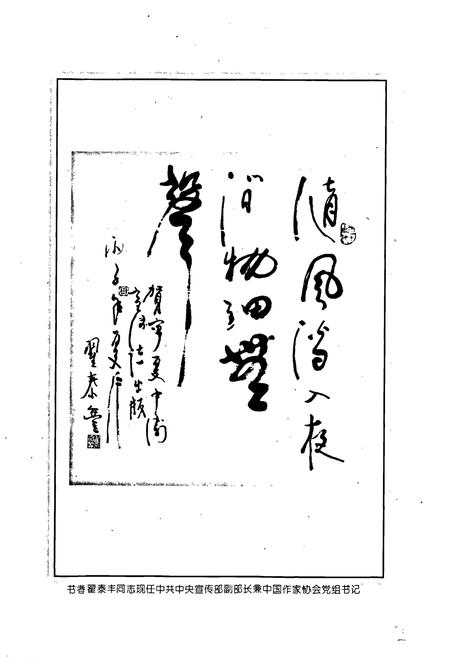 随風潛入夜
润物细無
聲
賀宁夏中衛
志出版
丙子年夏
翟泰豐
书者翟泰丰同志现任中共中央宣传部副部长兼中国作家协会党组书记